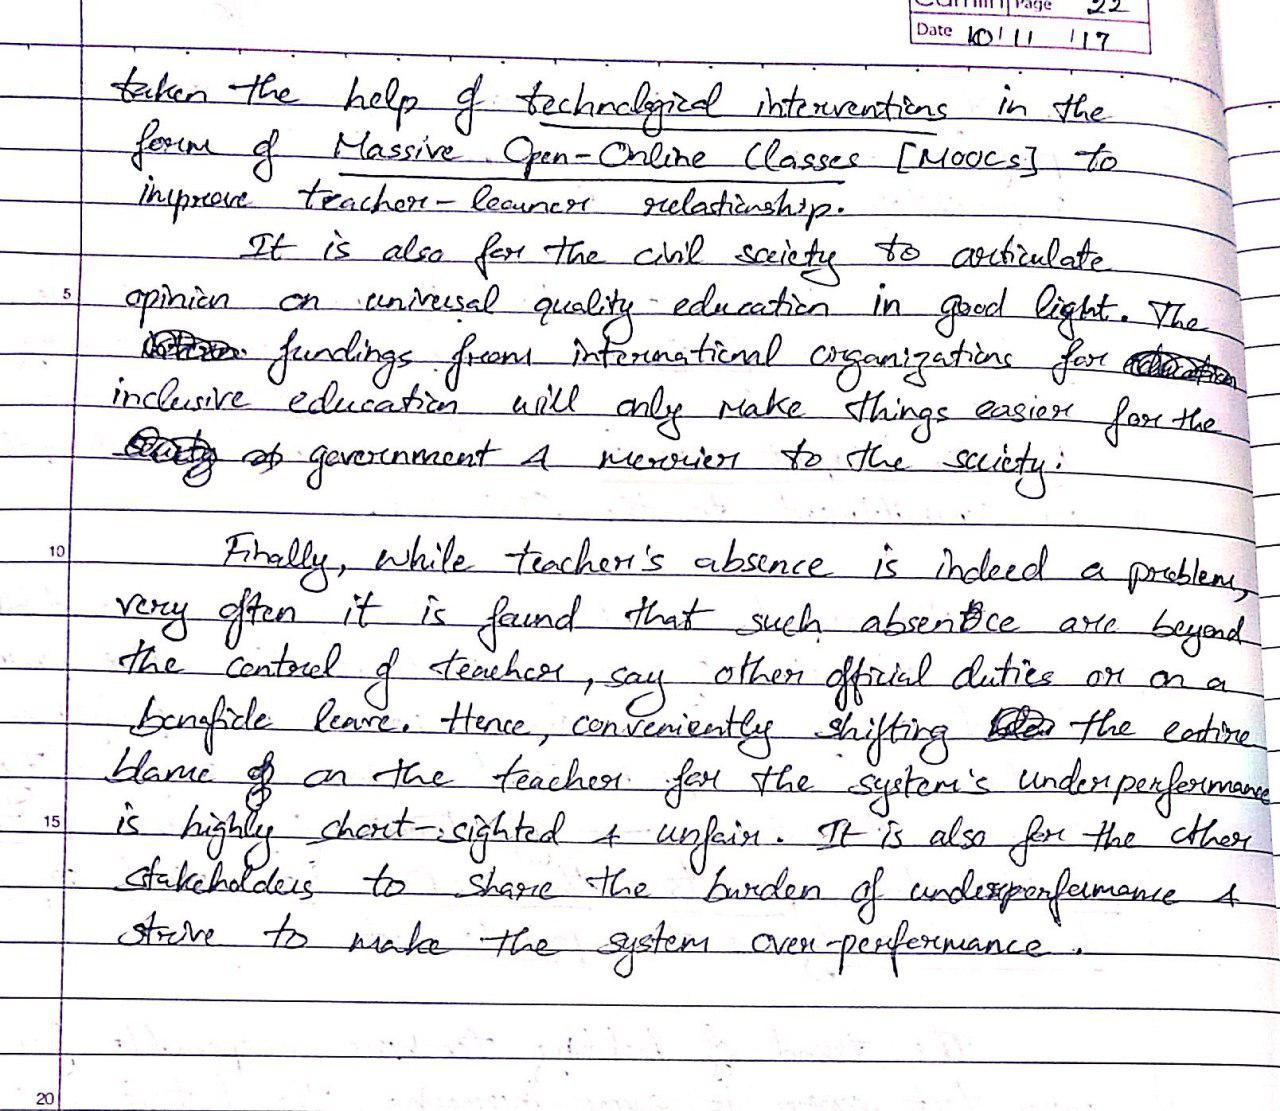 Camlin Page 22
Date 10/11/17
taken the help of technological interventions in the
form of Massive Open-Online Classes [MOOCs] to
improve teacher-learner relationship.
It is also for the civil society to articulate
5 opinion on universal quality education in good light. The
fundings from international organizations for
inclusive education will only make things easier for the
government & merrier to the society.
10 Finally, while teacher's absence is indeed a problem,
very often it is found that such absence are beyond
the control of teacher, say other official duties or on a
bonafide leave. Hence, conveniently shifting the entire
blame on the teacher for the system's underperformance
15 is highly short-sighted & unfair. It is also for the other
stakeholders to share the burden of underperformance &
strive to make the system over-performance.
20